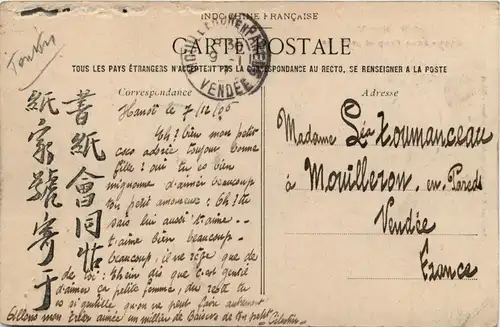 INDO-CHINE FRANÇAISE
CARTE POSTALE
TOUS LES PAYS ÉTRANGERS N'ACCEPTENT PAS LA CORRESPONDANCE AU RECTO, SE RENSEIGNER A LA POSTE
MOUILLERON EN PAREDS
VENDÉE
Correspondance
Hanoï le 7/12/06
Eh? bien mon petit
coco adorée toujour bonne
fille? oui tu es bien
mignonne d'aimer beaucoup
ton petit amoureux: Eh? tu
sais lui aussi t'aime
t'aime bien beaucoup
beaucoup, il ne rêve que de
de toi: Eh bien dis que c'est gentil
d'aimer sa petite femme, du reste tu
es si gentille qu'on ne peut faire autrement
Allons mon trésor aimée un millier de baisers de ton petit Célestin
書紙會同怙
紙家號寄于
Adresse
Madame Léa Loumanceau
à Mouilleron en Pareds
Vendée
France